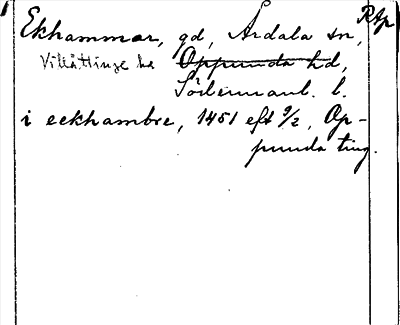 RAp
Ekhammar, gd, Årdala sn,
Villåttinge hd Oppunda hd,
Södermanl. l.
i eekhambre, 1451 eft 9/2, Op-
punda ting.